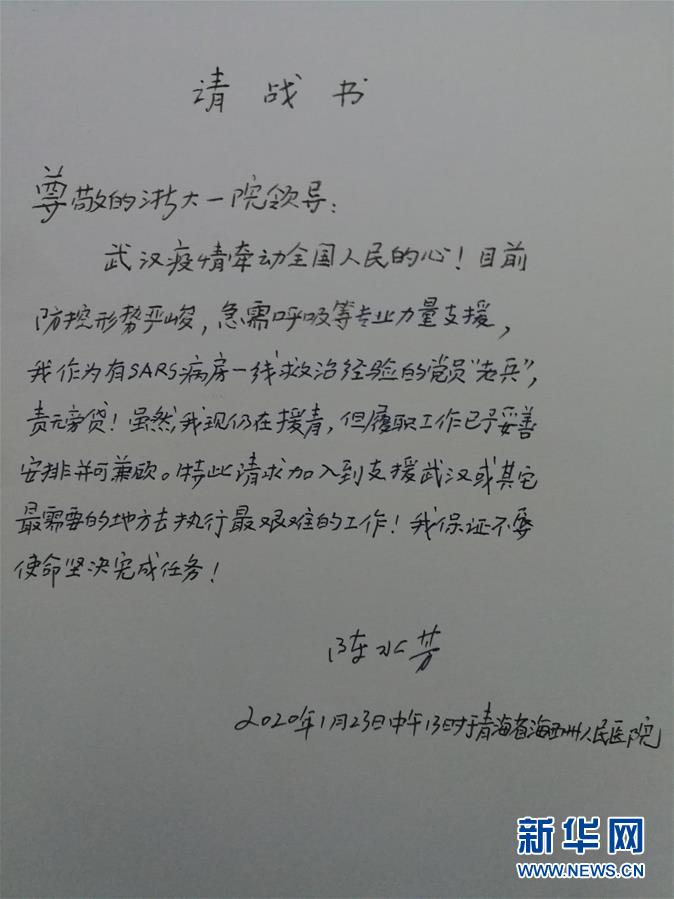 请战书
尊敬的浙大一院领导：
武汉疫情牵动全国人民的心！目前
防控形势严峻，急需呼吸等专业力量支援，
我作为有SARS病房一线救治经验的党员“老兵”，
责无旁贷！虽然，我现仍在援青，但履职工作已予妥善
安排并可兼顾。特此请求加入到支援武汉或其它
最需要的地方去执行最艰难的工作！我保证不辱
使命坚决完成任务！
陈水芳
2020年1月23日中午13时于青海省海西州人民医院
新华网
WWW.NEWS.CN